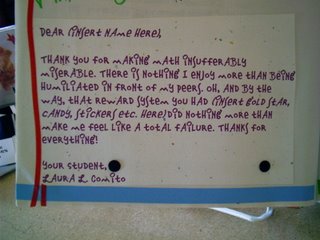 DEAR (INSERT NAME HERE),
THANK YOU FOR MAKING MATH INSUFFERABLY
MISERABLE. THERE IS NOTHING I ENJOY MORE THAN BEING
HUMILIATED IN FRONT OF MY PEERS. OH, AND BY THE
WAY, THAT REWARD SYSTEM YOU HAD (INSERT GOLD STAR,
CANDY, STICKERS ETC. HERE) DID NOTHING MORE THAN
MAKE ME FEEL LIKE A TOTAL FAILURE. THANKS FOR
EVERYTHING!
YOUR STUDENT,
LAURA L COMITO